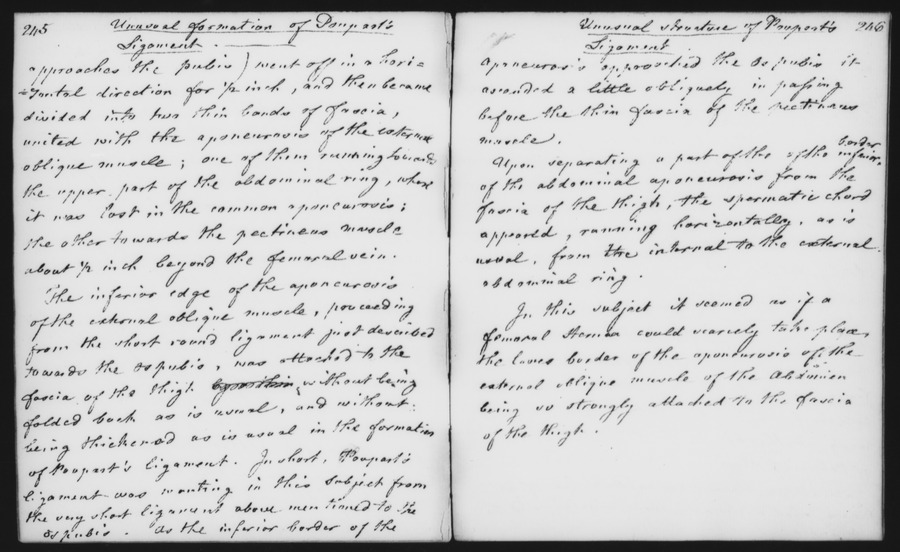 245 Unusual formation of Poupart's
Ligament.
approaches the pubis) went off in a hori=
=zontal direction for 1/2 inch, and then became
divided into two thin bands of fascia,
united with the aponeurosis of the external
oblique muscle; one of them running towards
the upper part of the abdominal ring, where
it was lost in the common aponeurosis;
the other towards the pectineus muscle
about 1/2 inch beyond the femoral vein.
The inferior edge of the aponeurosis
of the external oblique muscle, proceeding
from the short round ligament just described
towards the os pubis, was attached to the
fascia of the thigh without being
folded back as is usual, and without
being thickened as is usual in the formation
of Poupart's ligament. In short, Poupart's
ligament was wanting in this subject from
the very short ligament above mentioned to the
os pubis. As the inferior border of the
Unusual structure of Poupart's 246
Ligament.
aponeurosis approached the os pubis it
ascended a little obliquely in passing
before the thin fascia of the pectineus
muscle.
Upon separating a part of the of the inferior border
of the abdominal aponeurosis from the
fascia of the thigh, the spermatic chord
appeared, running horizontally, as is
usual, from the internal to the external
abdominal ring.
In this subject it seemed as if a
femoral Hernia could scarcely take place,
the lower border of the aponeurosis of the
external oblique muscle of the Abdomen
being so strongly attached to the fascia
of the thigh.